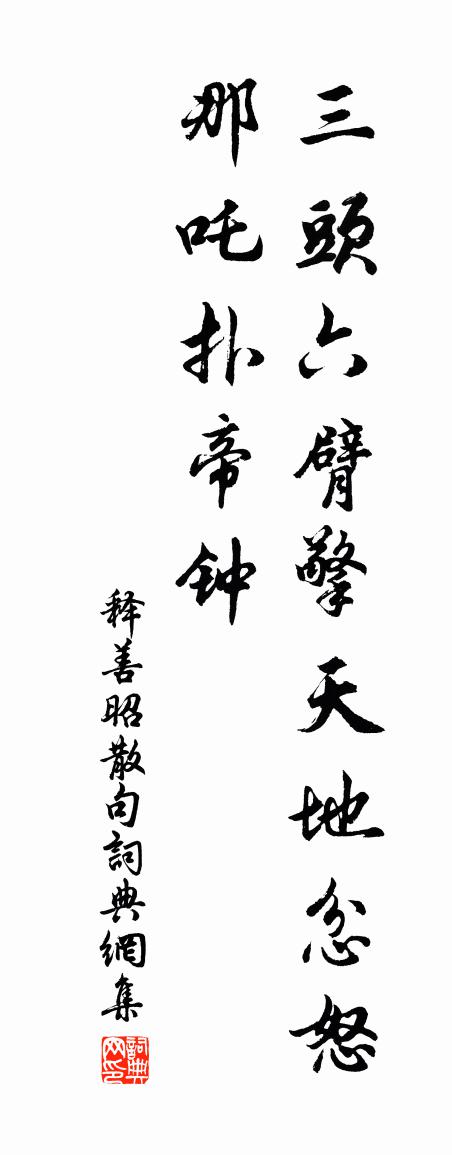 三頭六臂擎天地忿怒
那吒扑帝钟
释善昭散句詞典網集
詞典网印